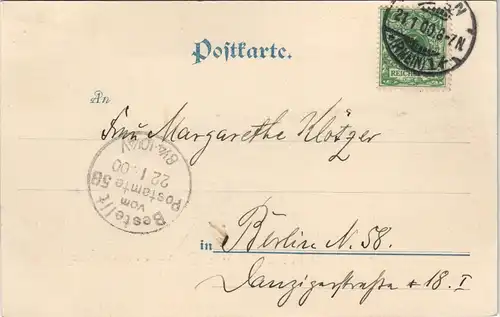 Postkarte.
21.1.00.6-7N
(RHEIN)
REICHSPOST
An
Frau Margarethe Klötzer
Bestellt
vom
Postamte 58
22 1.00
8¼-10¼V
in Berlin N. 58.
Danzigerstraße 18. I